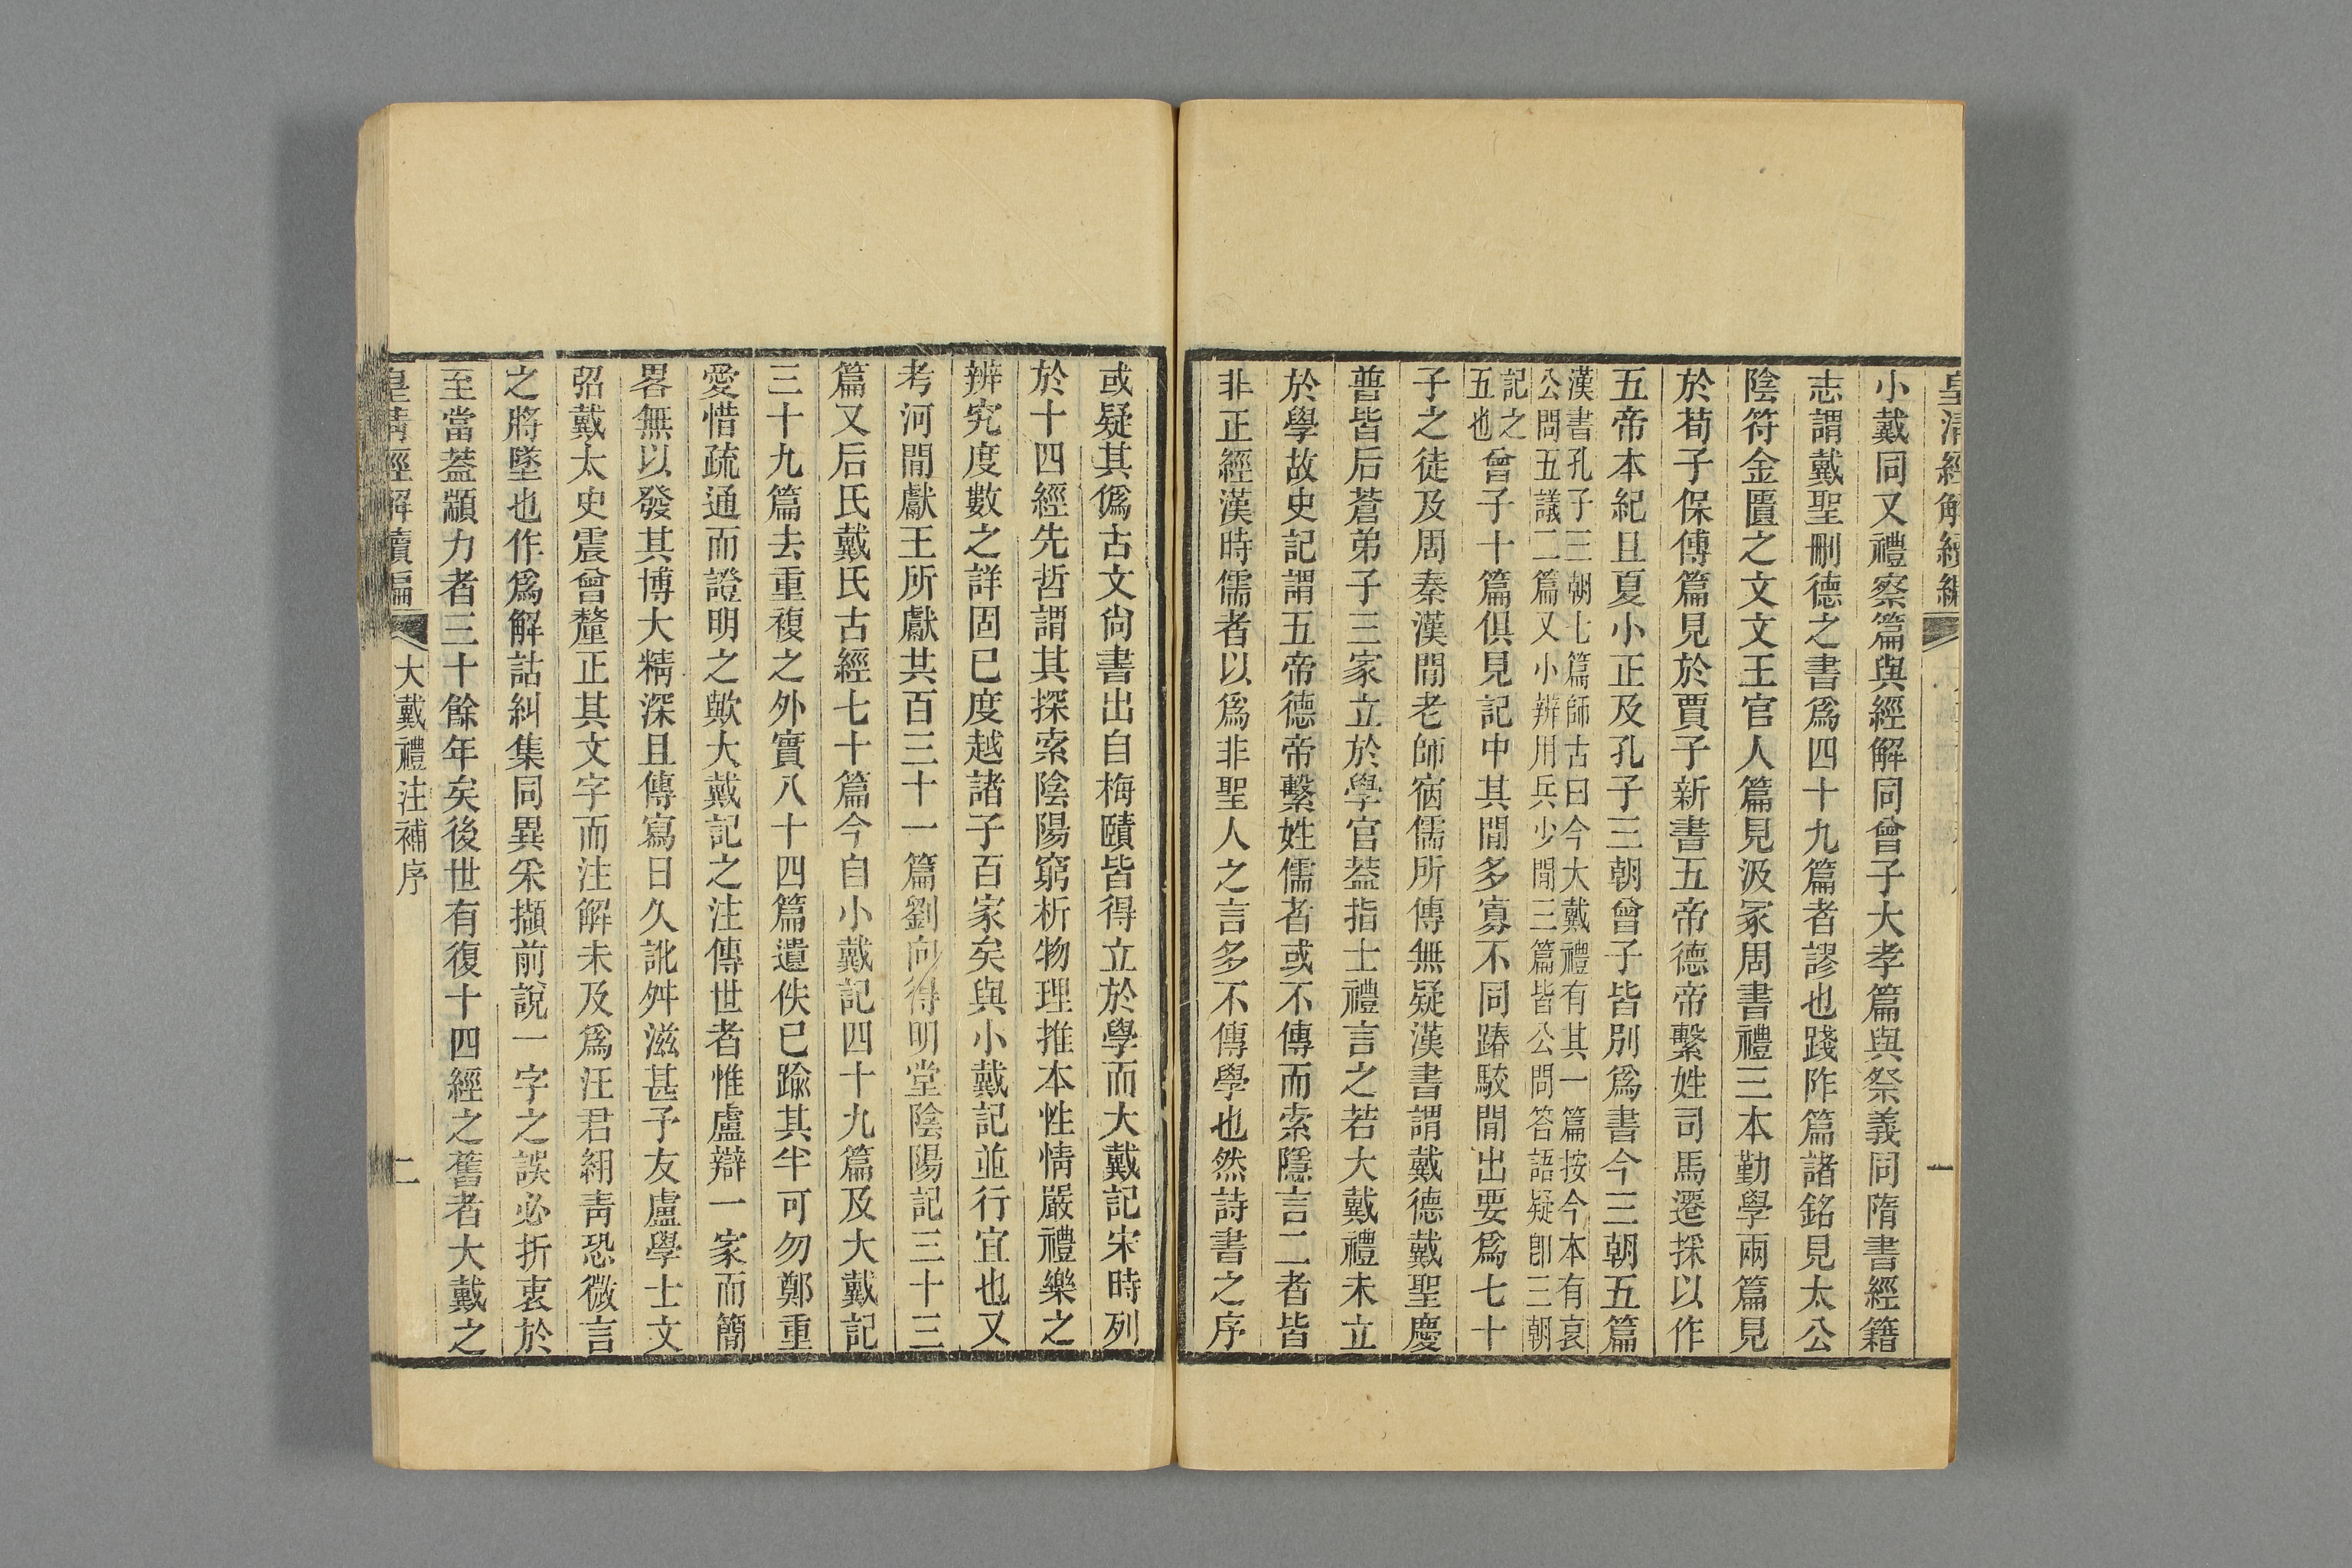 皇清經解續編
一
小戴同又禮察篇與經解同曾子大孝篇與祭義同隋書經籍
志謂戴聖刪德之書爲四十九篇者謬也踐阼篇諸銘見太公
陰符金匱之文文王官人篇見汲冢周書禮三本勤學兩篇見
於荀子保傅篇見於賈子新書五帝德帝繫姓司馬遷採以作
五帝本紀且夏小正及孔子三朝曾子皆別爲書今三朝五篇
漢書孔子三朝七篇師古曰今大戴禮有其一篇按今本有哀
公問五議二篇又小辨用兵少閒三篇皆公問答語疑卽三朝
記之
五也
曾子十篇俱見記中其閒多寡不同踳駮閒出要爲七十
子之徒及周秦漢閒老師宿儒所傳無疑漢書謂戴德戴聖慶
普皆后蒼弟子三家立於學官葢指士禮言之若大戴禮未立
於學故史記謂五帝德帝繫姓儒者或不傳而索隱言二者皆
非正經漢時儒者以爲非聖人之言多不傳學也然詩書之序
或疑其僞古文尙書出自梅賾皆得立於學而大戴記宋時列
於十四經先哲謂其探索陰陽窮析物理推本性情嚴禮樂之
辨究度數之詳固已度越諸子百家矣與小戴記並行宜也又
考河閒獻王所獻共百三十一篇劉向得明堂陰陽記三十三
篇又后氏戴氏古經七十篇今自小戴記四十九篇及大戴記
三十九篇去重複之外實八十四篇遺佚已踰其半可勿鄭重
愛惜疏通而證明之歟大戴記之注傳世者惟盧辯一家而簡
畧無以發其博大精深且傳寫日久訛舛滋甚予友盧學士文
弨戴太史震曾釐正其文字而注解未及爲汪君紃青恐微言
之將墜也作爲解詁糾集同異采擷前說一字之誤必折衷於
至當葢顓力者三十餘年矣後世有復十四經之舊者大戴之
皇淸經解續編
大戴禮注補序
二